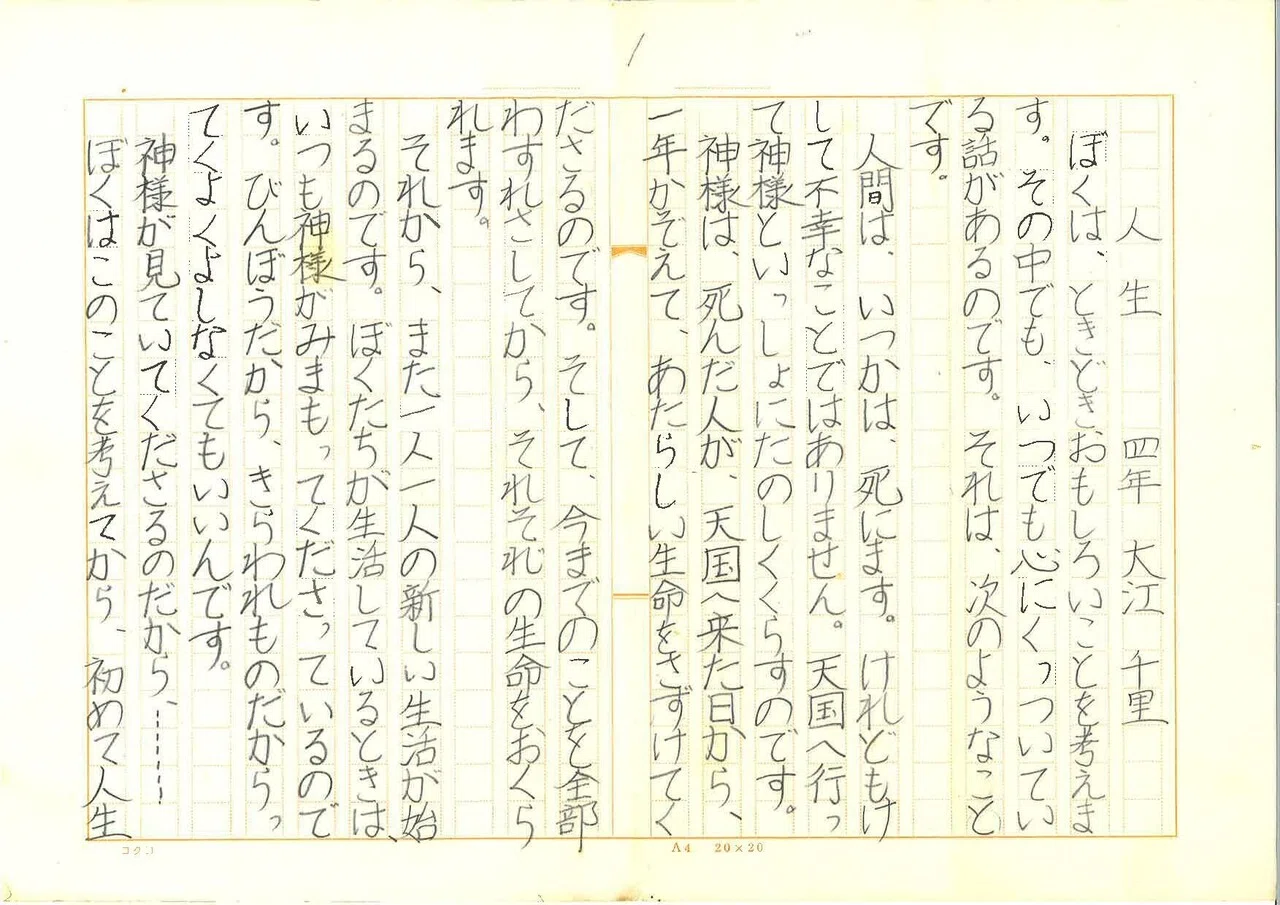 /
人生 四年 大江 千里
ぼくは、ときどきおもしろいことを考えま
す。その中でも、いつでも心にくっついてい
る話があるのです。それは、次のようなこと
です。
人間は、いつかは、死にます。けれどもけ
して不幸なことではありません。天国へ行っ
て神様といっしょにたのしくくらすのです。
神様は、死んだ人が、天国へ来た日から、
一年かぞえて、あたらしい生命をさずけてく
ださるのです。そして、今までのことを全部
わすれさしてから、それぞれの生命をおくら
れます。
それから、また一人一人の新しい生活が始
まるのです。ぼくたちが生活しているときは、
いつも神様がみまもってくださっているので
す。びんぼうだから、きらわれものだからっ
てくよくよしなくてもいいんです。
神様が見ていてくださるのだから、………
ぼくはこのことを考えてから、初めて人生
コクヨ
A4 20×20